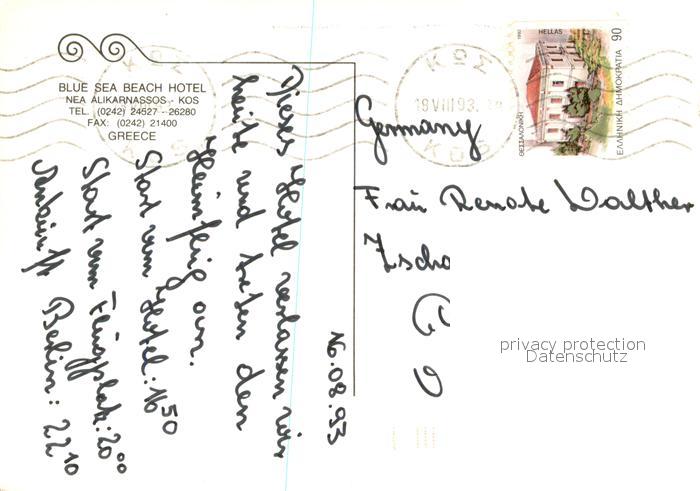 BLUE SEA BEACH HOTEL
NEA ALIKARNASSOS - KOS
TEL. (0242) 24527 - 26280
FAX: (0242) 21400
GREECE
16.08.93
Dieses Hotel verlassen wir
heute und treten den
Heimflug an.
Start vom Hotel: 16 50
Start vom Flugplatz: 20 00
Ankunft Berlin: 22 10
ΚΩΣ
19 VIII 93
ΚΩΣ
1992 HELLAS 90
ΘΕΣΣΑΛΟΝΙΚΗ
ΕΛΛΗΝΙΚΗ ΔΗΜΟΚΡΑΤΙΑ
Germany
Frau Renate Walther
Zscho
privacy protection
Datenschutz